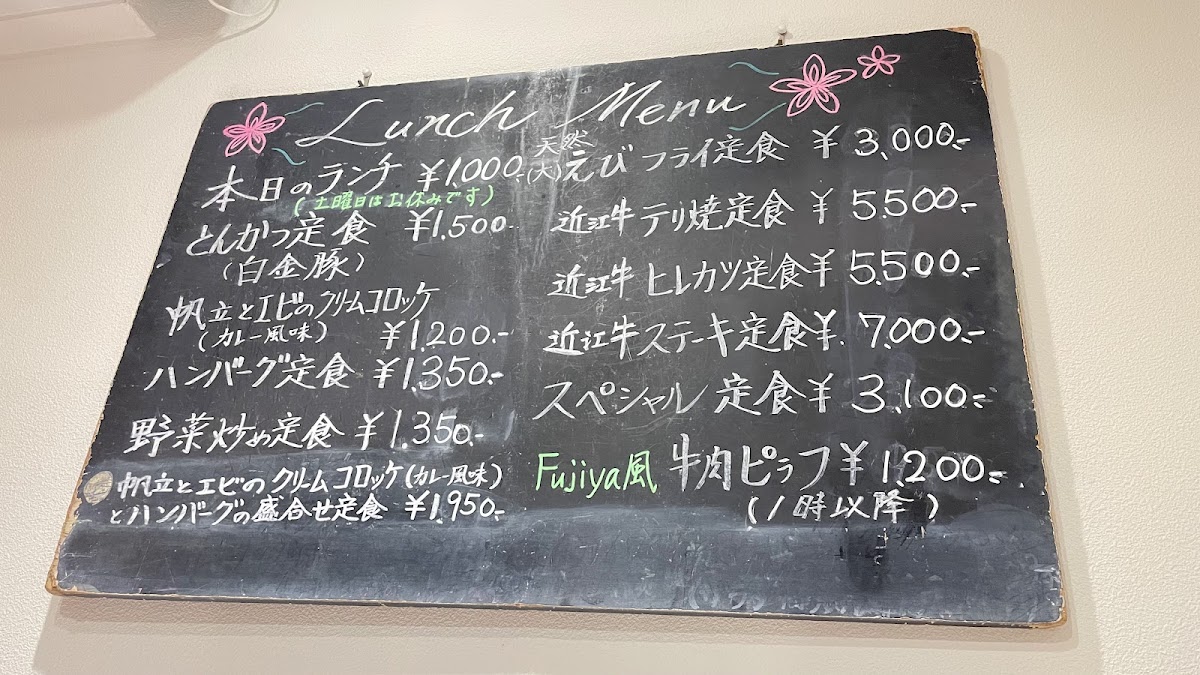 Lunch Menu
本日のランチ ¥1,000-
(土曜日はお休みです)
とんかつ定食 ¥1,500-
(白金豚)
帆立とエビのクリームコロッケ
(カレー風味) ¥1,200.-
ハンバーグ定食 ¥1,350.-
野菜炒め定食 ¥1,350.-
帆立とエビのクリームコロッケ(カレー風味)
とハンバーグの盛合せ定食 ¥1,950.-
天然
(大)えびフライ定食 ¥3,000.-
近江牛テリ焼定食 ¥5,500.-
近江牛ヒレカツ定食¥5,500.-
近江牛ステーキ定食¥7,000.-
スペシャル定食¥3,100.-
Fujiya風 牛肉ピラフ¥1,200.-
(1時以降)